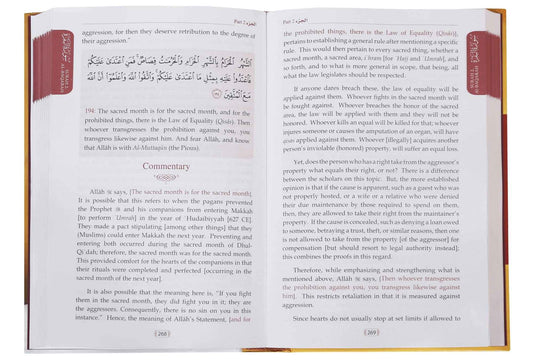 Part 2 الجزء
aggression, for then they deserve retribution to the degree
of their aggression."
الشَّهْرُ الْحَرَامُ بِالشَّهْرِ الْحَرَامِ وَالْحُرُمَاتُ قِصَاصٌ فَمَنِ اعْتَدَى عَلَيْكُمْ
فَاعْتَدُوا عَلَيْهِ بِمِثْلِ مَا اعْتَدَى عَلَيْكُمْ وَاتَّقُوا اللَّهَ وَاعْلَمُوا أَنَّ اللَّهَ
مَعَ الْمُتَّقِينَ
194. The sacred month is for the sacred month, and for the
prohibited things, there is the Law of Equality (Qisâs). Then
whoever transgresses the prohibition against you, you
transgress likewise against him. And fear Allâh, and know
that Allâh is with Al-Muttaqûn (the Pious).
Commentary
Allâh ﷻ says, [The sacred month is for the sacred month].
It is possible that this refers to when the pagans prevented the
Prophet ﷺ and his companions from entering Makkah
[to perform 'Umrah] in the year of Hudaibiyyah [627 CE].
They made a pact stipulating [among other things] that they
(Muslims) could enter Makkah the next year. Preventing and
entering both occurred during the sacred month of Dhul-
Qi'dah; therefore, the sacred month was for the sacred month.
This provided comfort for the hearts of the companions in that
their rituals were completed and perfected [occurring in the
sacred month of the next year].
It is also possible that the meaning here is, "If you fight
them in the sacred month, they did fight you in it; they are
the aggressors. Consequently, there is no sin on you in this
instance." Hence, the meaning of Allâh's Statement, [and for
268
Part 2 الجزء
the prohibited things, there is the Law of Equality (Qisâs)],
pertains to establishing a general rule after mentioning a specific
rule. This would then pertain to every sacred thing, whether a
sacred month, a sacred area, ihram [for Hajj] and 'Umrah, and
so forth, and to what is more general in scope, that being, all
what the law legislates should be respected.
If anyone dares breach these, the law of equality will be
applied against them. Whoever fights in the sacred month will
be fought against. Whoever breaches the honor of the sacred
area, the law will be applied with them and they will not be
honored. Whoever kills an equal will be killed for that; whoever
injures someone or causes the amputation of an organ, will have
qisâs applied against them. Whoever [illegally] acquires another
person's inviolable (honored) property, will suffer an equal loss.
Yet, does the person who has a right take from the aggressor's
property what equals their right, or not? There is a difference
between the scholars on this topic. But, the more established
opinion is that if the cause is apparent, such as a guest who was
not properly hosted, or a wife or a relative who were denied
their due maintenance by those required to spend on them,
then, they are allowed to take their right from the maintainer's
property. If the cause is concealed, such as denying a loan owed
to someone, betraying a trust, theft, or similar reasons, then one
is not allowed to take from the property [of the aggressor] for
compensation [but should resort to legal authority instead];
this combines the proofs in this regard.
Therefore, while emphasizing and strengthening what is
mentioned above, Allâh ﷻ says, [Then whoever transgresses
the prohibition against you, you transgress likewise against
him]. This restricts retaliation in that it is measured against
aggression.
Since hearts do not usually stop at set limits if allowed to
269